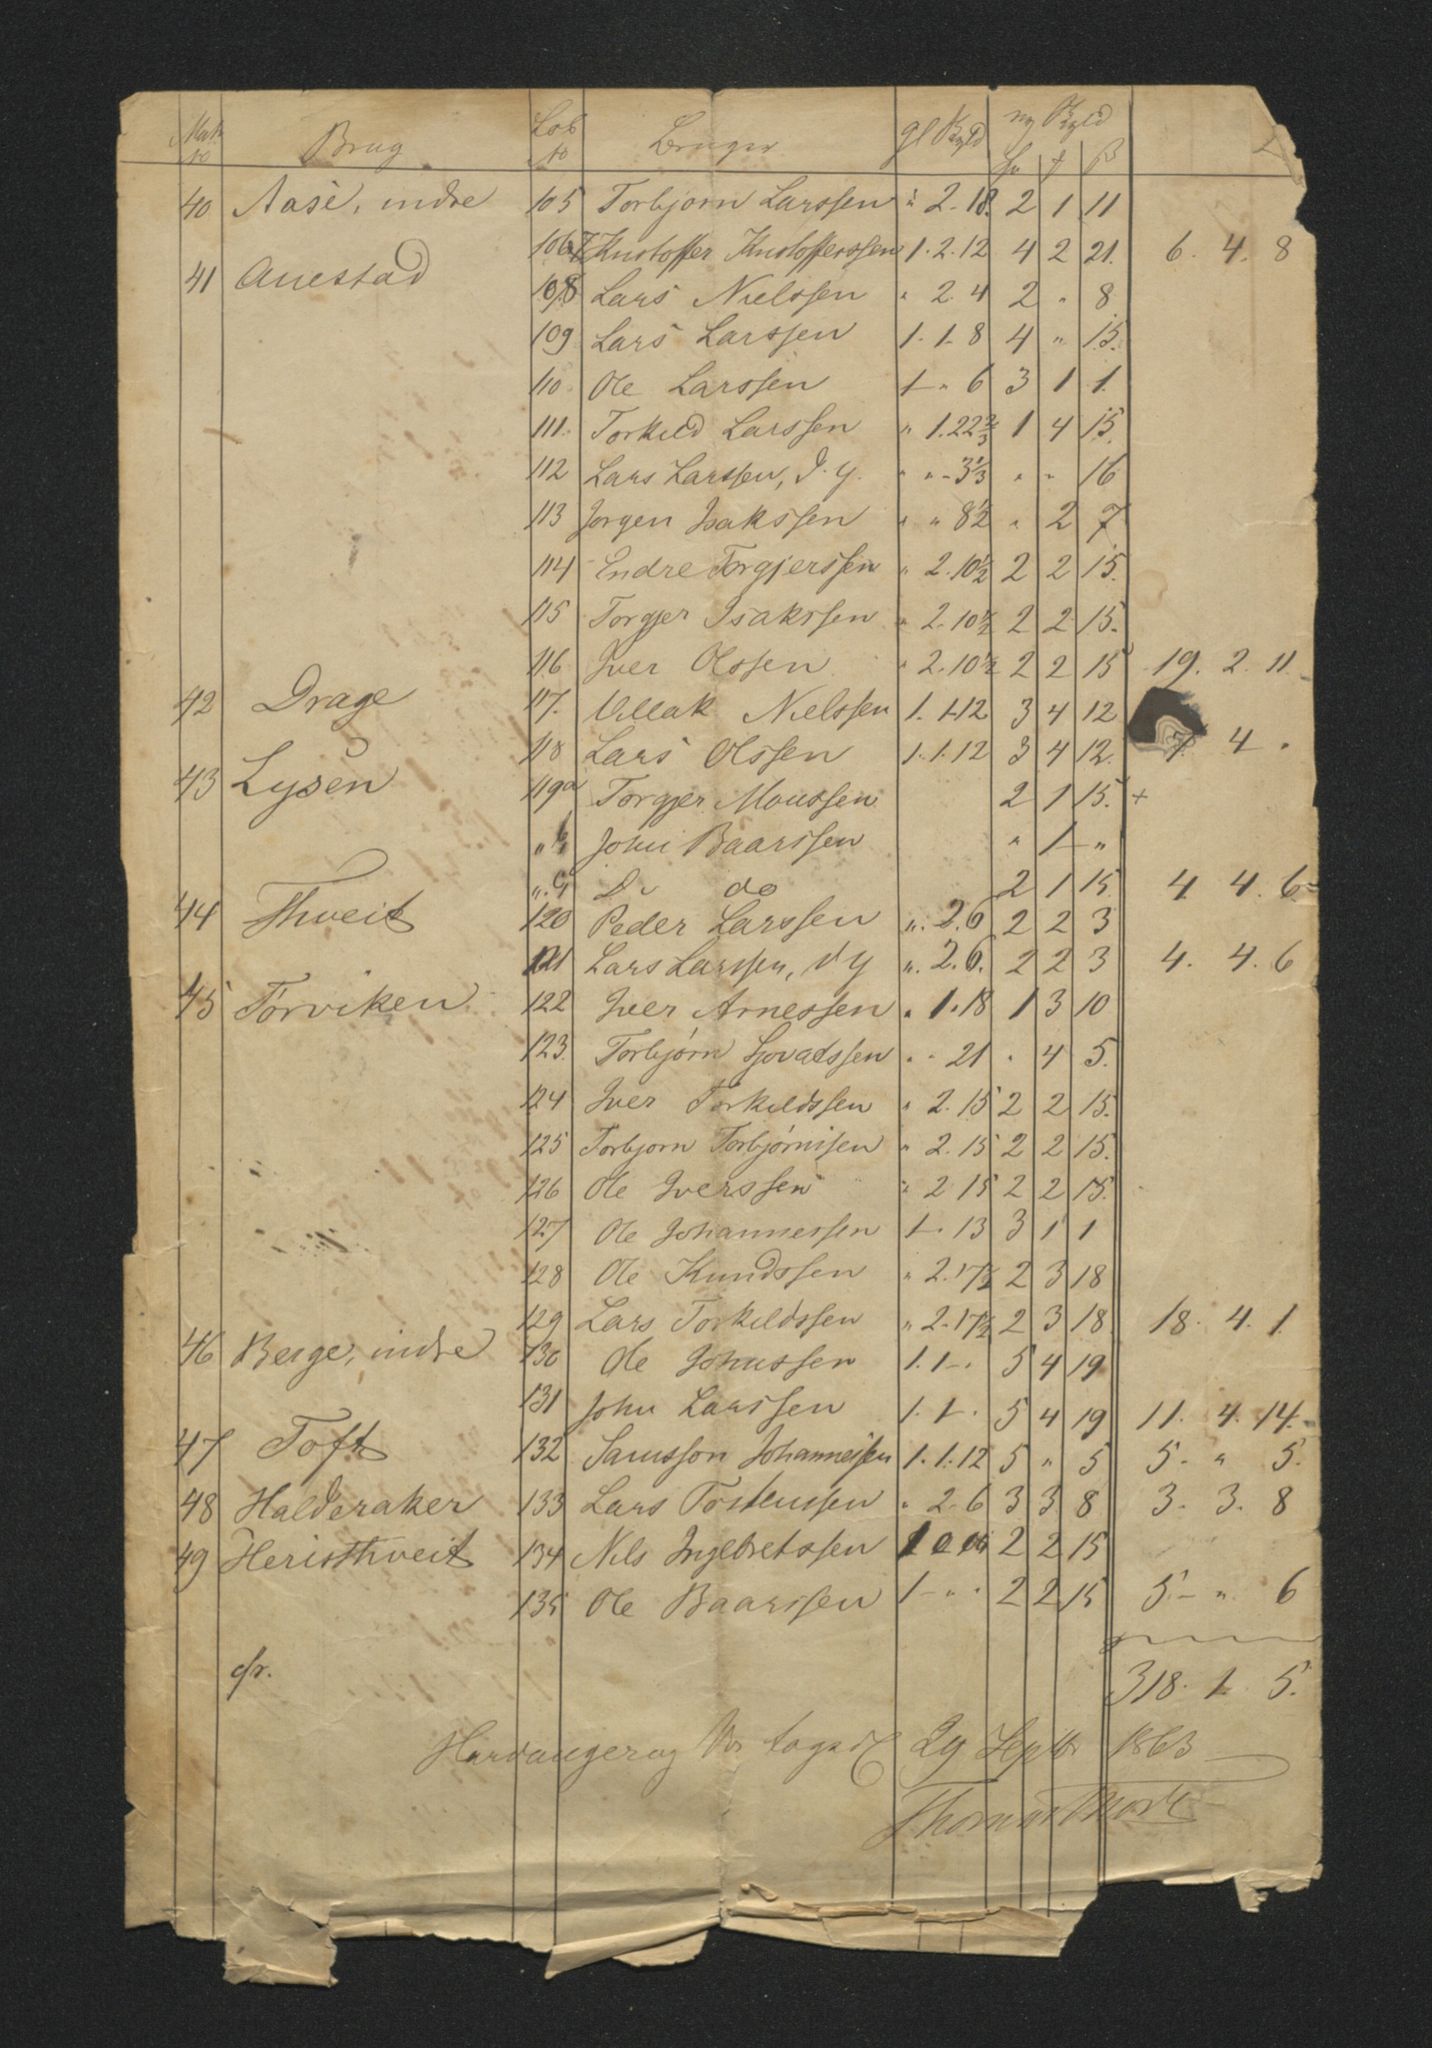 Matr No Brug Lob No Bruger gl Skyld ny Skyld
40 Aase, indre 105 Torbjorn Larssen " 2. 18. 2 1 11
106/7 Kristoffer Kristofferssen 1. 2. 12 4 2 21. 6. 4. 8
41 Auestad 108 Lars Nielssen " 2. 4 2 " 8
109 Lars Larssen 1. 1. 8 4 " 15.
110 Ole Larssen 1 - " 6 3 1 1.
111. Torkild Larssen " 1. 22 2/3 1 4 15.
112 Lars Larssen, d. y. " " - 3 1/3 " " 16
113 Jorgen Isakssen " " 8 1/2 " 2 7
114 Endre Torgjerssen " 2. 10 1/2 2 2 15.
115 Torgjer Isakssen " 2. 10 1/2 2 2 15.
116 Iver Olssen " 2. 10 1/2 2 2 15 19. 2. 11.
42 Drage 117. Villak Nielssen 1. 1. 12 3 4 12
118 Lars Olssen 1. 1. 12 3 4 12. 7. 4 "
43 Lysen 119a Torgjer Monssen 2 1 15. +
" b John Baarssen " 1 - "
" c Do do 2 1 15 4. 4. 6
44 Thveit 120 Peder Larssen ". 2. 6 2 2 3
121 Lars Larssen, d y ". 2. 6. 2 2 3 4. 4. 6
45 Torviken 122 Iver Arnessen " 1. 18 1 3 10
123. Torbjørn Sjovatssen " " 21 " 4 5.
124 Iver Torkildssen " 2. 15 2 2 15.
125 Torbjorn Torbjørnssen " 2. 15 2 2 15.
126 Ole Iverssen " 2 15 2 2 15.
127 Ole Johannessen 1 - . 13 3 1 1
128 Ole Knudssen " 2. 17 1/2 2 3 18
129 Lars Torkildssen " 2. 17 1/2 2 3 18 18. 4. 1.
46 Berge, indre 130 Ole Johnssen 1. 1 - . 5 4 19
131 John Larssen 1. 1 - . 5 4 19 11. 4. 14.
47 Toft 132 Samsson Johannessen 1. 1. 12 5 " 5 5. " 5.
48 Halderaker 133 Lars Torstenssen " 2. 6 3 3 8 3. 3. 8
49 Heristhveit 134 Nils Ingebretssen 1 2 2 15
135 Ole Baarssen 1 - " . 2 2 15 5. - " 6
318. 1. 5.
Hardanger og Vos 29 Septbr 1863
Thomas